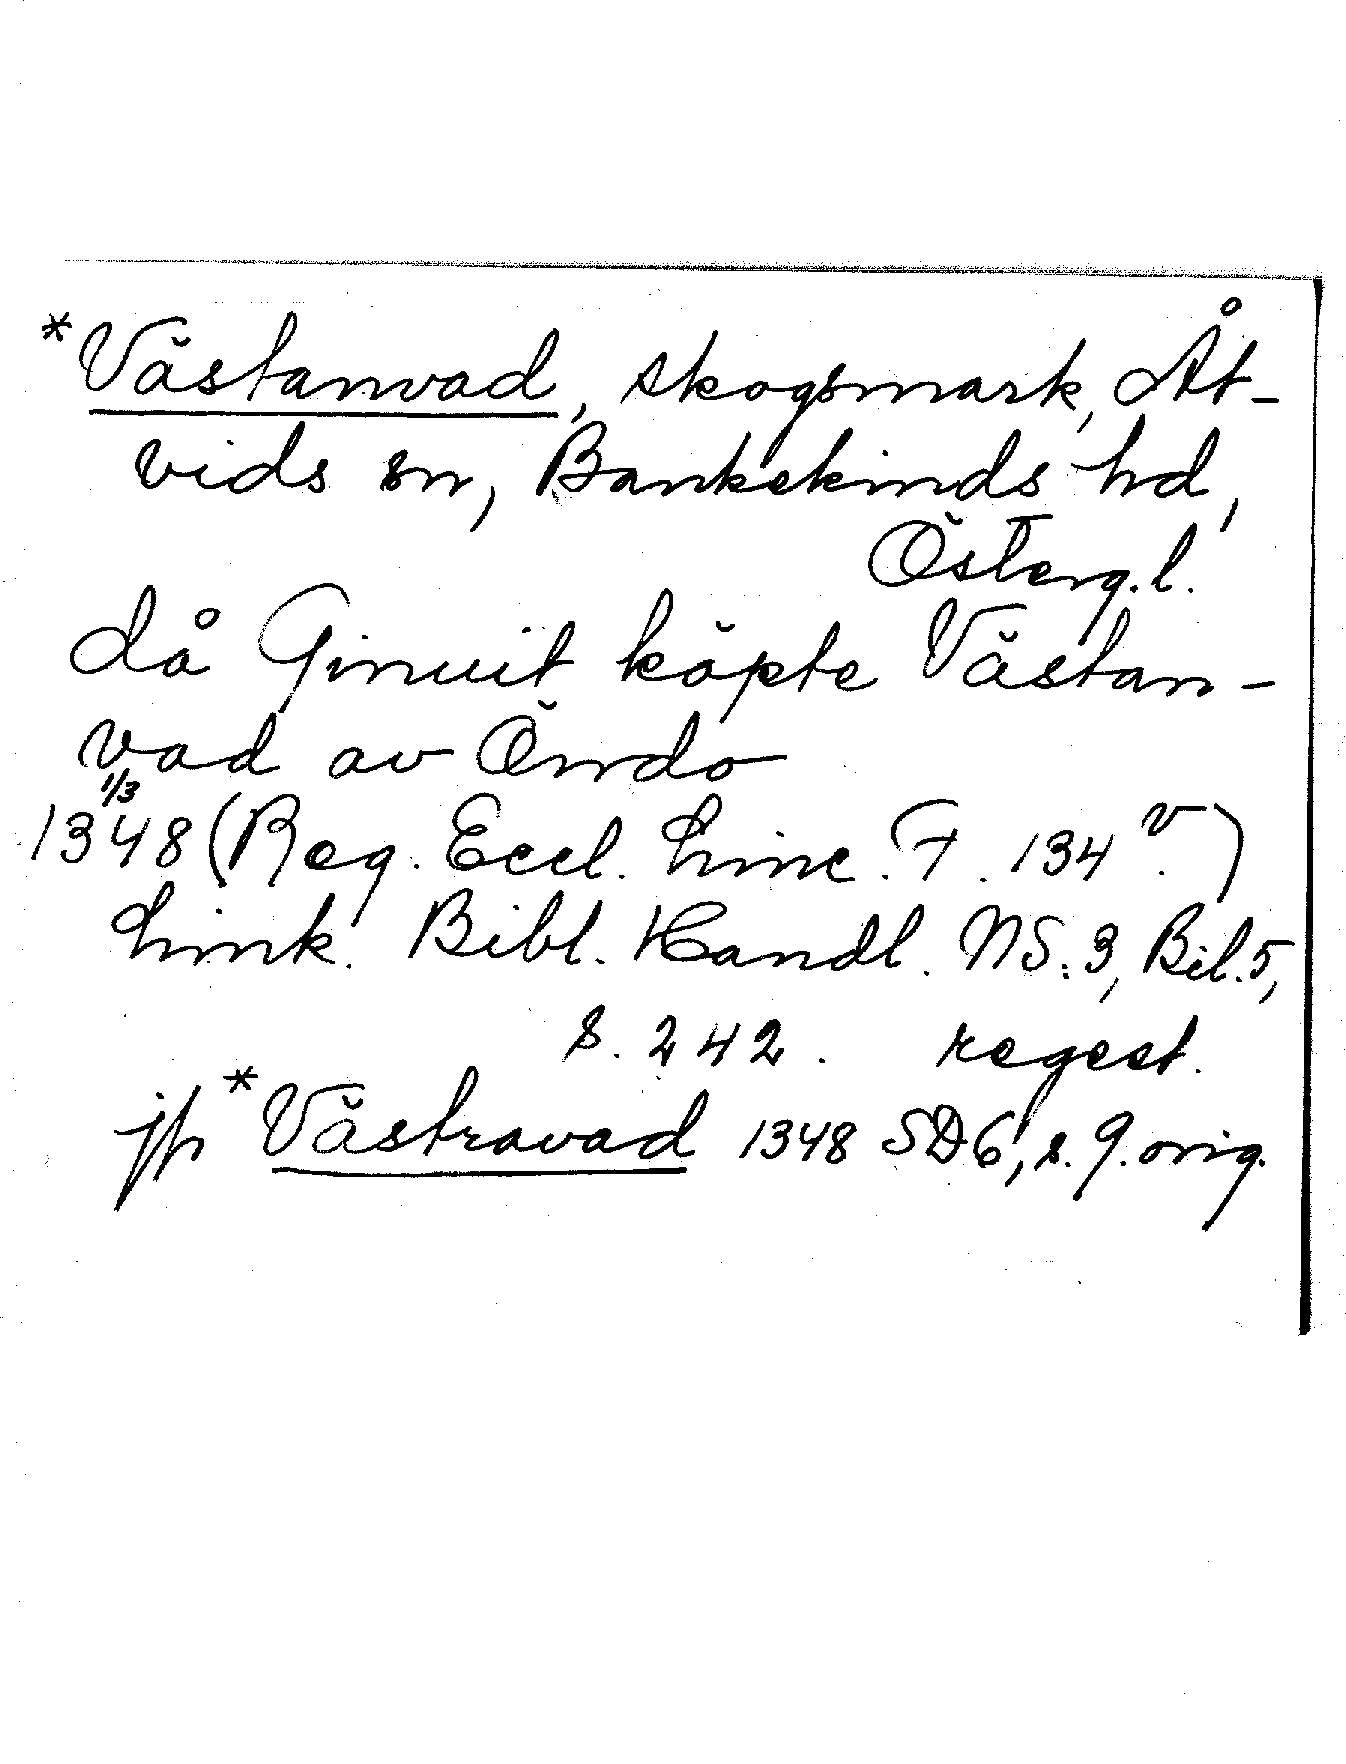 *Västanvad, skogsmark, Åt-
vids sn, Bankekinds hd,
Österg.l.
då Ginuit köpte Västan-
vad av Öndo
1/3
1348 (Reg. Eccl. Linc. F. 134 v.)
Link. Bibl. Handl. NS:3, Bil.5,
s. 242. regest.
jfr *Västravad 1348 SD 6, s. 9. orig.